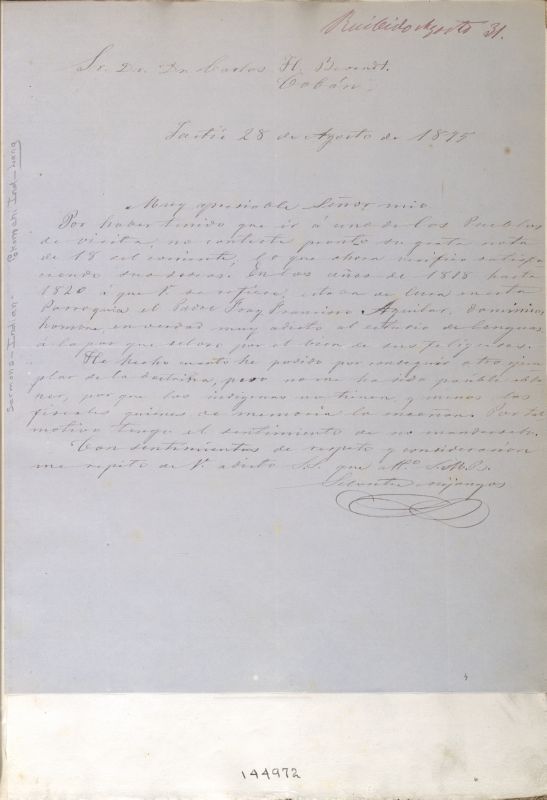 Recibido Agosto 31.
Sr. Dr. Dn Carlos H. Berendt.
Cobán.
Tactic 28 de Agosto de 1875
Muy apreciable Señor mio
Por haber tenido que ir á uno de los Pueblos
de visita, no contesté pronto su grata nota
de 18 del corriente, lo que ahora verifico satisfa
ciendo sus deseos. En los años de 1818 hasta
1820 á que V. se refiere, estaba de Cura en esta
Parroquia el Padre Fray Francisco Aguilar, Dominico,
hombre en verdad muy adicto al estudio de lenguas,
á la par que celoso por el bien de sus feligreses.
He hecho cuanto he podido por conseguir otro ejem
plar de la doctrina, pero no me ha sido posible obte
ner, por que los indigenas no tienen, y menos los
fiscales quienes de memoria la enseñan. Por tal
motivo tengo el sentimiento de no mandarsela.
Con sentimientos de respeto y consideracion
me repito de V. adicto S.S. que a
Mijangos
Sermons-Indian-
Pokomah Ind-lang
144972